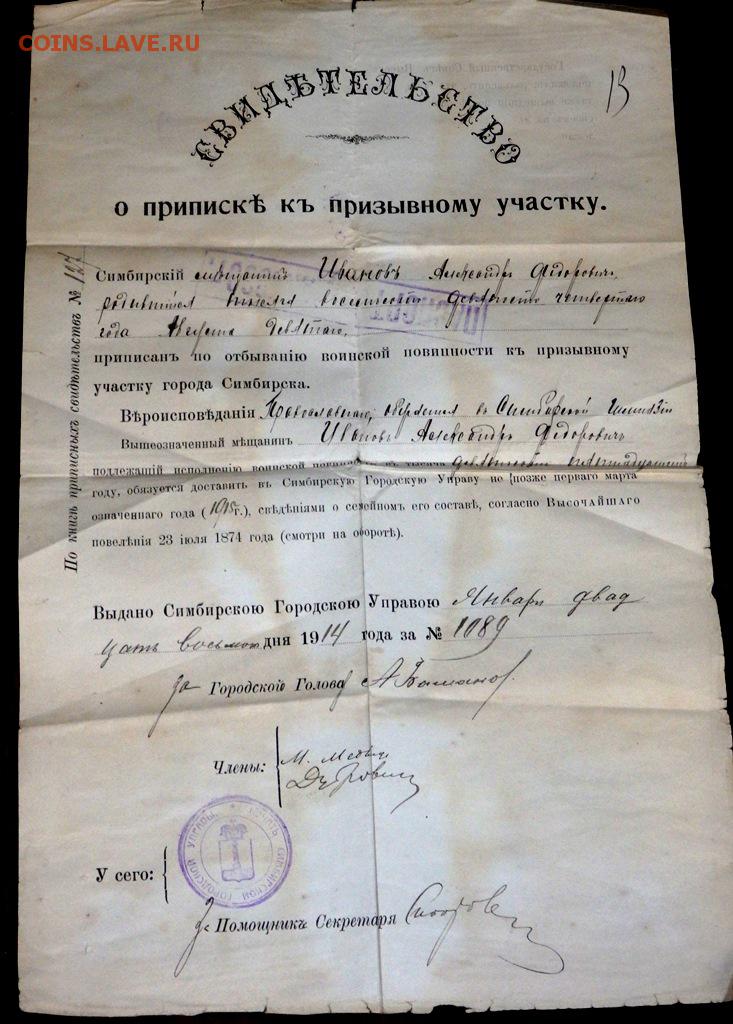 COINS.LAVE.RU
13
СВИДѢТЕЛЬСТВО
о припискѣ къ призывному участку.
По книгѣ приписныхъ свидѣтельствъ № 127
Симбирскій мѣщанинъ Ивановъ Александръ Ѳёдоровичъ,
родившійся тысяча восемьсотъ девяносто четвертаго
года Августа девятаго,
приписанъ по отбыванію воинской повинности къ призывному
участку города Симбирска.
Вѣроисповѣданія Православнаго, обучался въ Симбирской Гимназіи
Вышеозначенный мѣщанинъ Ивановъ Александръ Ѳёдоровичъ
подлежащій исполненію воинской повинности въ тысяча девятьсотъ пятнадцатомъ
году, обязуется доставить въ Симбирскую Городскую Управу не позже перваго марта
означеннаго года (1915 г.), свѣдѣніями о семейномъ его составѣ, согласно Высочайшаго
повелѣнія 23 іюля 1874 года (смотри на оборотѣ).
Выдано Симбирскою Городскою Управою Января двад
цать восьмого дня 1914 года за № 1089
За Городского Голову
Члены:
У сего:
ПЕЧАТЬ СИМБИРСКОЙ ГОРОДСКОЙ УПРАВЫ
За Помощникъ Секретаря